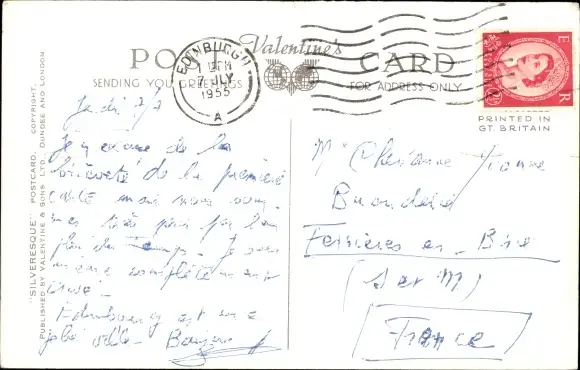 POST Valentine's CARD
SENDING YOU GREETINGS FOR ADDRESS ONLY
EDINBURGH
7 JLY
1955
A
E R
PRINTED IN
GT. BRITAIN
"SILVERESQUE" POSTCARD. COPYRIGHT.
PUBLISHED BY VALENTINE & SONS LTD. DUNDEE AND LONDON
Jeudi 7/7
de la
brièveté de la première
carte mais nous som
mes très pris par la
plus du Temps. Je suis
même complètement
Edimbourg est une
jolie ville. Baisers
Ferrières en Brie
(S et M)
(France)